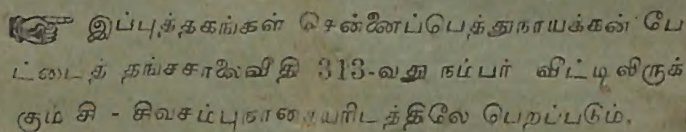 இப்புத்தகங்கள் சென்னைப்பெத்துநாயக்கன் பே
ட்டைத் தங்கசாலைவீதி 313-வது நம்பர் வீட்டிலிருக்
கும் சி - சிவசம்பு பெறப்படும்.